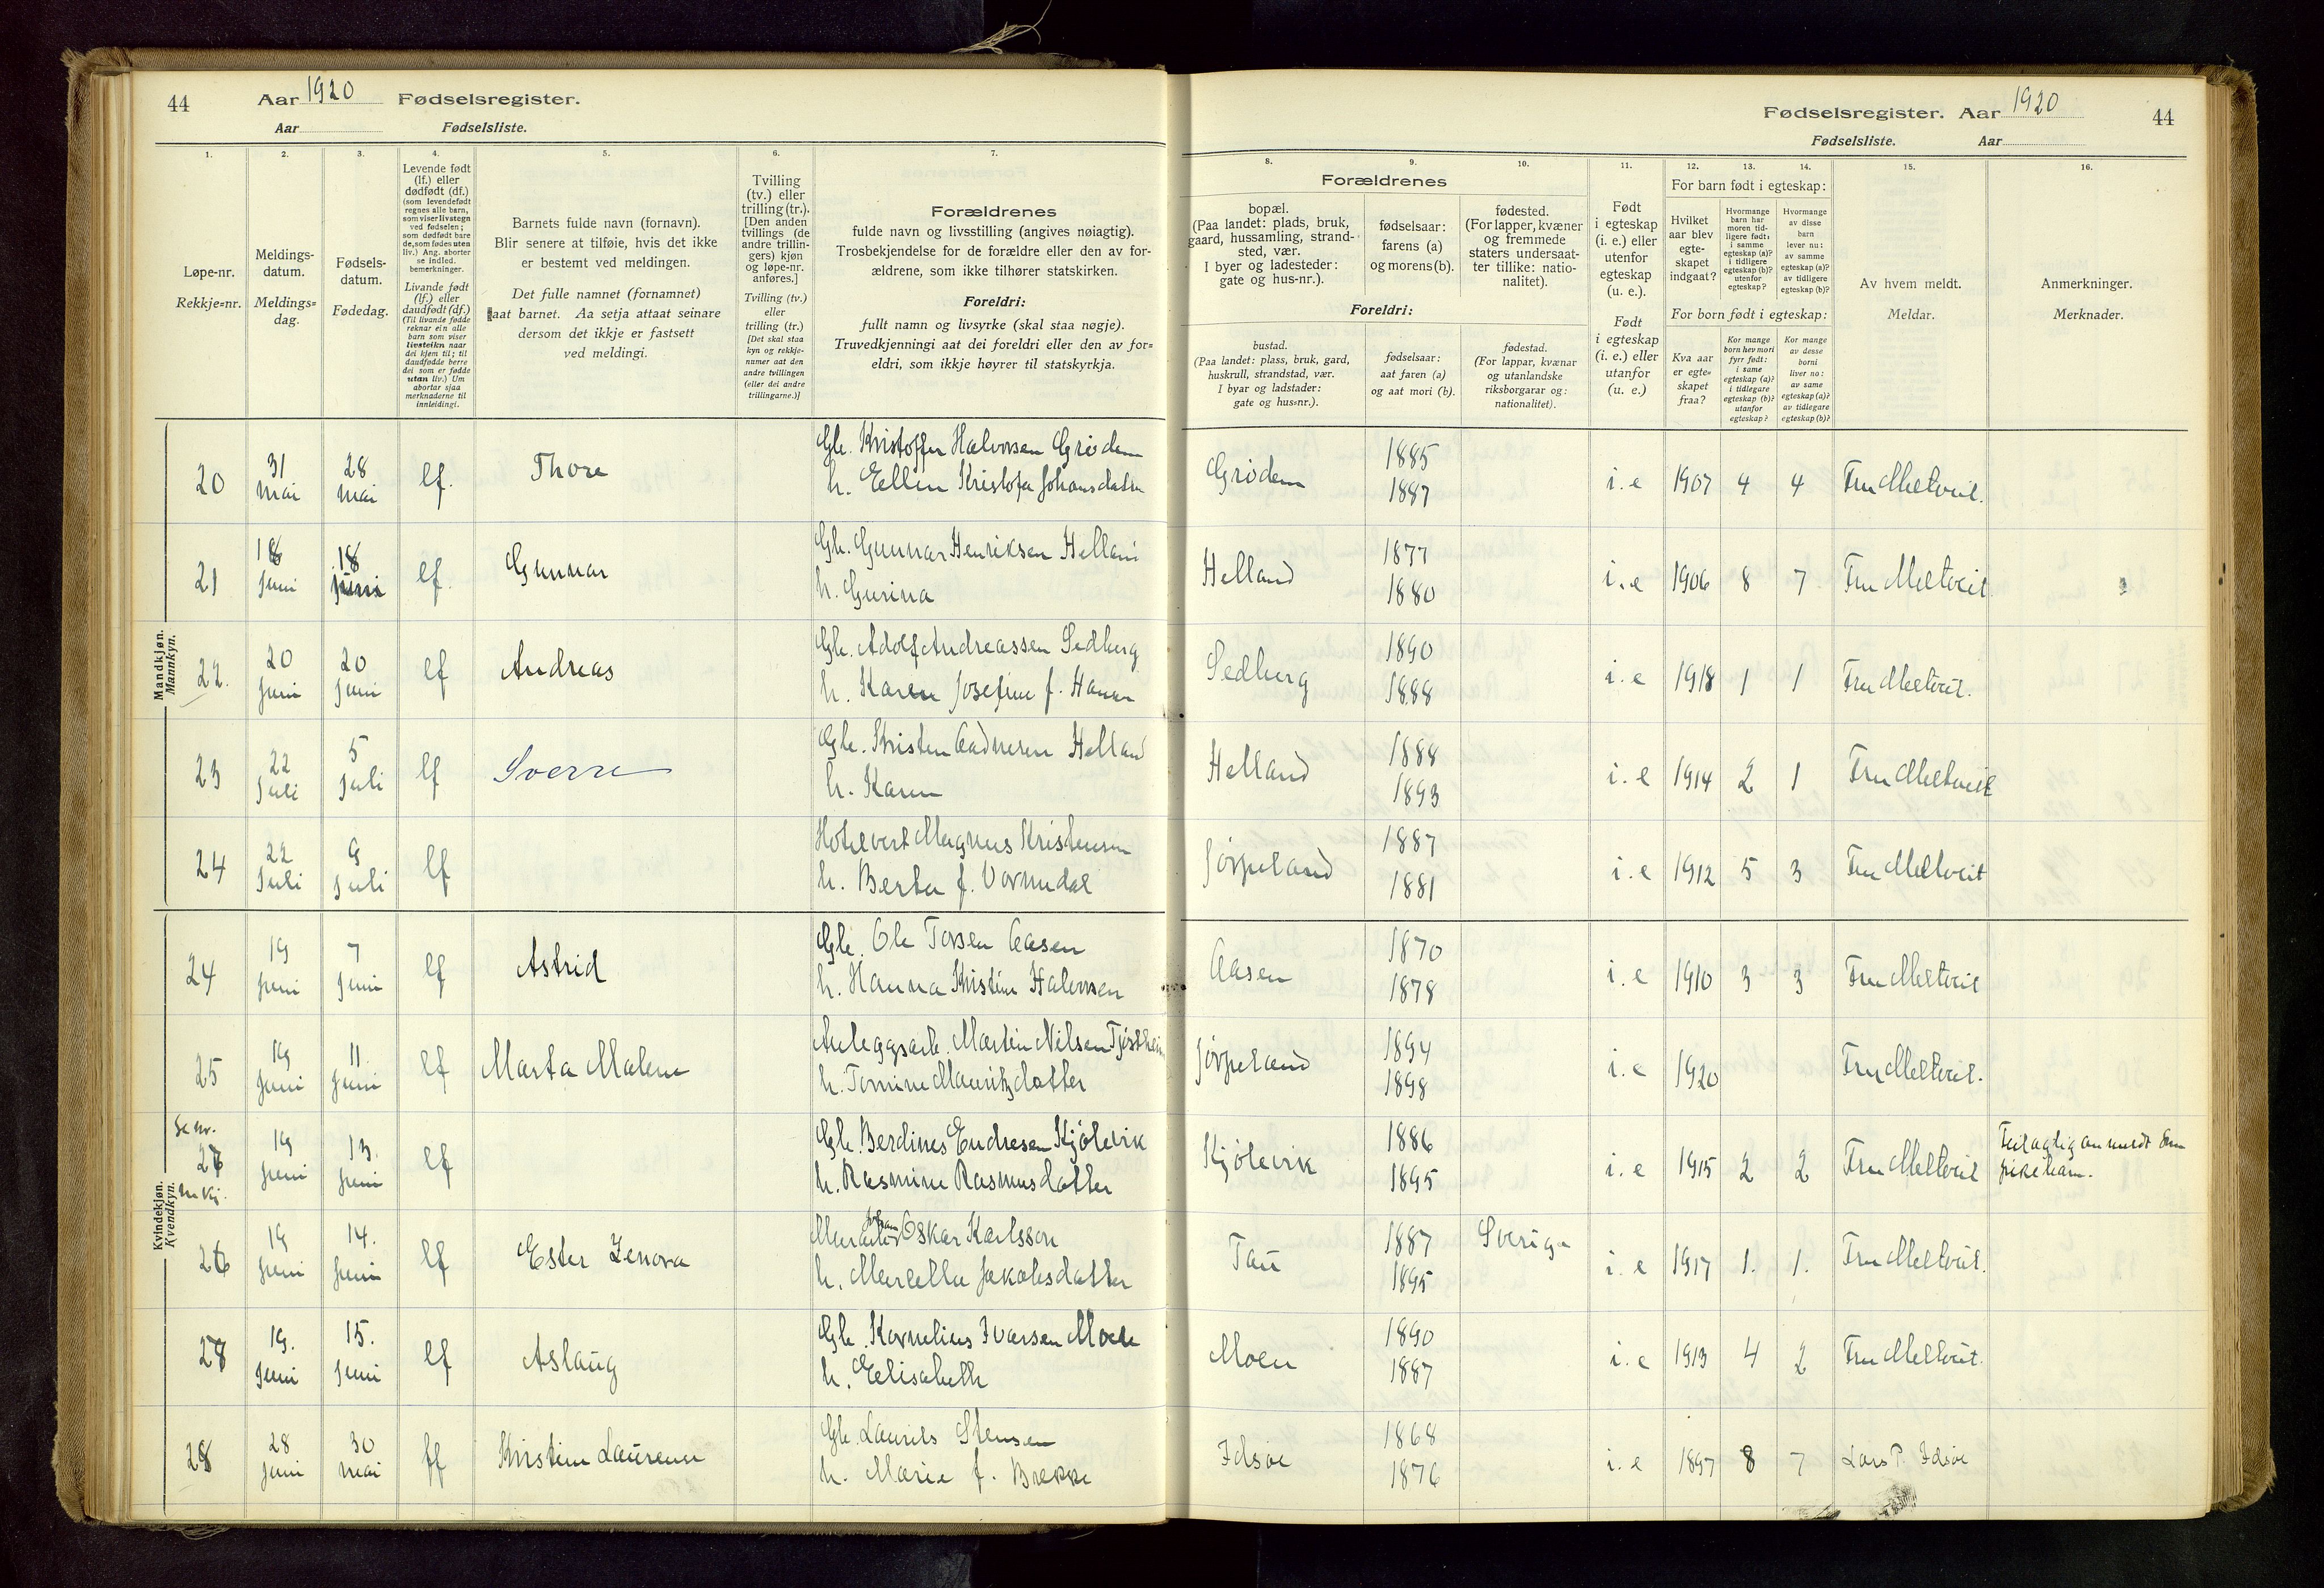 44
Aar 1920 Fødselsregister.
Aar Fødselsliste.
Fødselsregister. Aar 1920
44
Fødselsliste. Aar
1.
Løpe-nr.
Rekkje=nr.
2.
Meldings-
datum.
Meldings=
dag.
3.
Fødsels-
datum.
Fødedag.
4.
Levende født
(lf.) eller
dødfødt (df.)
(som levendefødt
regnes alle barn,
som viser livstegn
ved fødselen;
som dødfødt bare
de, som fødes uten
liv.) Ang. aborter
se indled.
bemerkninger.
Livande født
(lf.) eller
daudfødt (df.)
(Til livande fødde
reknar ein alle
barn som viser
livsteikn naar
dei kjem til; til
daudfødde berre
dei som er fødde
utan liv.) Um
abortar sjaa
merknaderne til
innleidingi.
5.
Barnets fulde navn (fornavn).
Blir senere at tilføie, hvis det ikke
er bestemt ved meldingen.
Det fulle namnet (fornamnet)
aat barnet. Aa setja attaat seinare
dersom det ikkje er fastsett
ved meldingi.
6.
Tvilling
(tv.) eller
trilling (tr.).
[Den anden
tvillings (de
andre trillin-
gers) kjøn
og løpe-nr.
anføres.]
Tvilling (tv.)
eller
trilling (tr.)
[Det skal staa
kyn og rekkje-
numer aat den
andre tvillingen
(eller dei andre
trillingarne.)]
7.
Forældrenes
fulde navn og livsstilling (angives nøiagtig).
Trosbekjendelse for de forældre eller den av for-
ældrene, som ikke tilhører statskirken.
Foreldri:
fullt namn og livsyrke (skal staa nøgje).
Truvedkjenningi aat dei foreldri eller den av for=
eldri, som ikkje høyrer til statskyrkja.
8.
Forældrenes
bopæl.
(Paa landet: plads, bruk,
gaard, hussamling, strand-
sted, vær.
I byer og ladesteder:
gate og hus-nr.).
Foreldri:
bustad.
(Paa landet: plass, bruk, gard,
huskrull, strandstad, vær.
I byar og ladstader:
gate og hus=nr.).
9.
fødselsaar:
farens (a)
og morens (b).
fødselsaar:
aat faren (a)
og aat mori (b).
10.
fødested.
(For lapper, kvæner
og fremmede
staters undersaat-
ter tillike: natio-
nalitet).
fødestad.
(For lappar, kvænar
og utanlandske
riksborgarar og:
nationalitet).
11.
Født
i egteskap
(i. e.) eller
utenfor
egteskap
(u. e.).
Født
i egteskap
(i. e.) eller
utanfor
(u. e.)
12. 13. 14.
For barn født i egteskap:
Hvilket
aar blev
egte-
skapet
indgaat?
Hvormange
barn har
moren tid-
ligere født:
i samme
egteskap (a)?
i tidligere
egteskap (b)?
utenfor
egteskap?
Hvormange
av disse
barn
lever nu:
av samme
egteskap (a)?
av tidligere
egteskap (b)?
For born født i egteskap:
Kva aar
er egte=
skapet
fraa?
Kor mange
born hev mori
fyrr født:
i same
egteskap (a)?
i tidlegare
egteskap (b)?
utanfor
egteskap?
Kor mange
av desse
borni
liver no:
av same
egteskap (a)?
av tidlegare
egteskap (b)?
15.
Av hvem meldt.
Meldar.
16.
Anmerkninger.
Merknader.
Mandkjøn.
Mannkyn.
20 31 mai 28 mai lf. Thore
Gb. Kristoffer Halvorsen Grødem
h. Ellen Kristofa Johansdatter
Grødem 1885 1887 i. e 1907 4 4 Fru Meltveit.
21 18 juni 18 juni lf. Gunnar
Gb. Gunnar Henriksen Helland
h. Gurina
Helland 1877 1880 i. e 1906 8 7 Fru Meltveit
22. 20 juni 20 juni lf Andreas
Gb. Adolf Andreassen Sedberg
h. Karen Josefine f.
Sedberg 1890 1888 i. e 1918 1 1 Fru Meltveit.
23 22 Juli 5 Juli lf Sverre
Gb. Kristen Aadnesen Helland
h. Karen
Helland 1888 1893 i. e 1914 2 1 Fru Meltveit
24 22 Juli 9 Juli lf
Hotelvert Magnus Kristensen
h. Berta f. Vormedal
Jørpeland 1887 1881 i. e 1912 5 3 Fru Meltveit
Kvindekjøn.
Kvendkyn.
24 19 juni 7 juni lf Astrid
Gb. Ole Torsen Aasen
h. Hanna Kristine Halvorsen
Aasen 1870 1878 i. e 1910 3 3 Fru Meltveit
25 19 juni 11. juni lf Marta Malene
Anleggsarb. Martin Nilsen Tjøstheim
h. Tomine Mauritzdatter
Jørpeland 1894 1898 i. e 1920 Fru Meltveit.
Se nr.
27
m.kj.
19 juni 13. juni lf
Gb. Berdines Endresen Kjølevik
h. Rasmine Rasmusdatter
Kjølevik 1886 1895 i. e 1915 2 2 Fru Meltveit
Feilagtig anmeldt som
pikebarn.
26 19 juni 14. juni lf Ester Zenora
Murarbeid Johan Oskar Karlsson
h. Marcella Jakobsdatter
Tau 1887 1895 Sverige i. e 1917 1. 1. Fru Meltveit.
27 19. juni 15. juni lf Aslaug
Gb. Kornelius Ivarsen Moen
h. Elisabeth
Moen 1890 1887 i. e 1913 4 2 Fru Meltveit.
28 28 juni 30 mai lf Kristine Laurense
Gb. Laurits Stensen
h. Marie f. Brekke
Idsøe 1868 1876 i. e 1897 8 7 Lars P. Idsøe